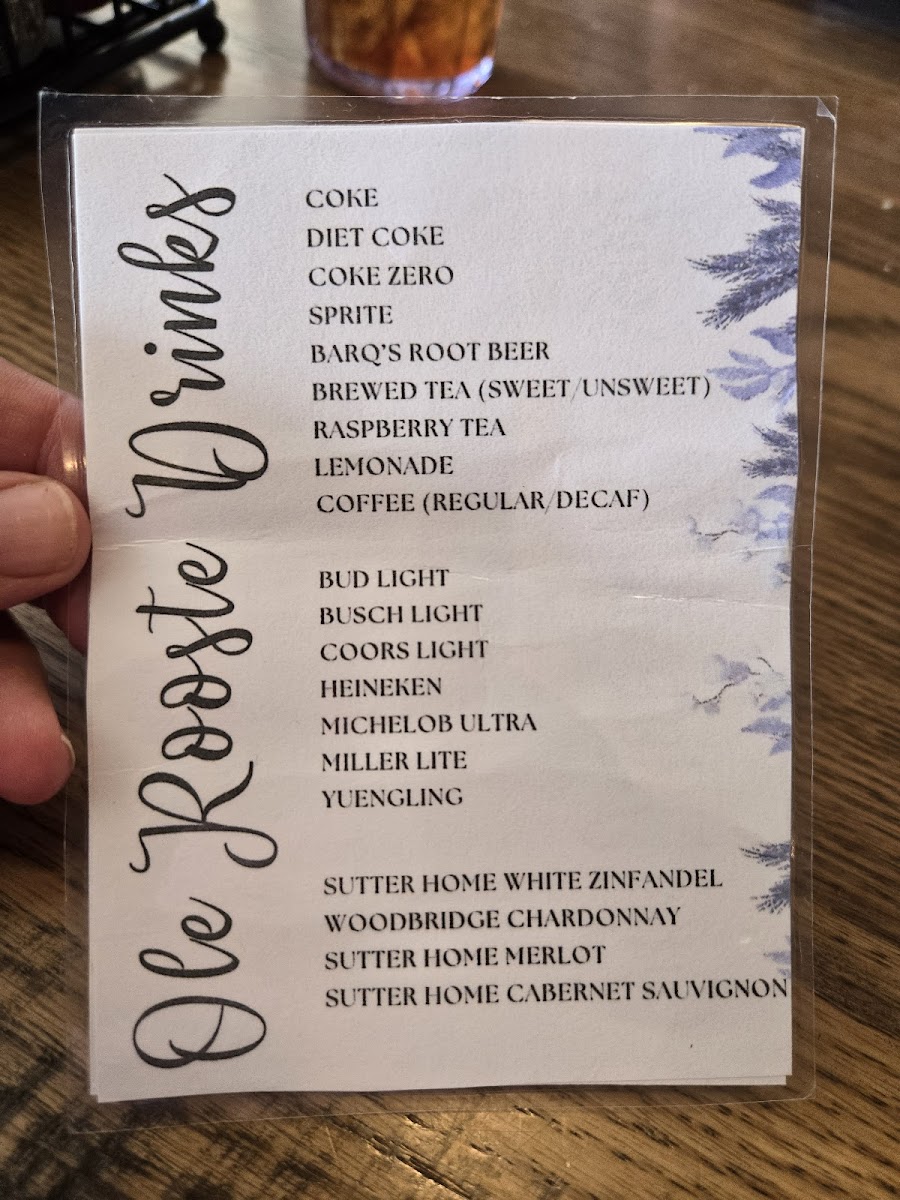 Ole Rooste Drinks
COKE
DIET COKE
COKE ZERO
SPRITE
BARQ'S ROOT BEER
BREWED TEA (SWEET/UNSWEET)
RASPBERRY TEA
LEMONADE
COFFEE (REGULAR/DECAF)
BUD LIGHT
BUSCH LIGHT
COORS LIGHT
HEINEKEN
MICHELOB ULTRA
MILLER LITE
YUENGLING
SUTTER HOME WHITE ZINFANDEL
WOODBRIDGE CHARDONNAY
SUTTER HOME MERLOT
SUTTER HOME CABERNET SAUVIGNON